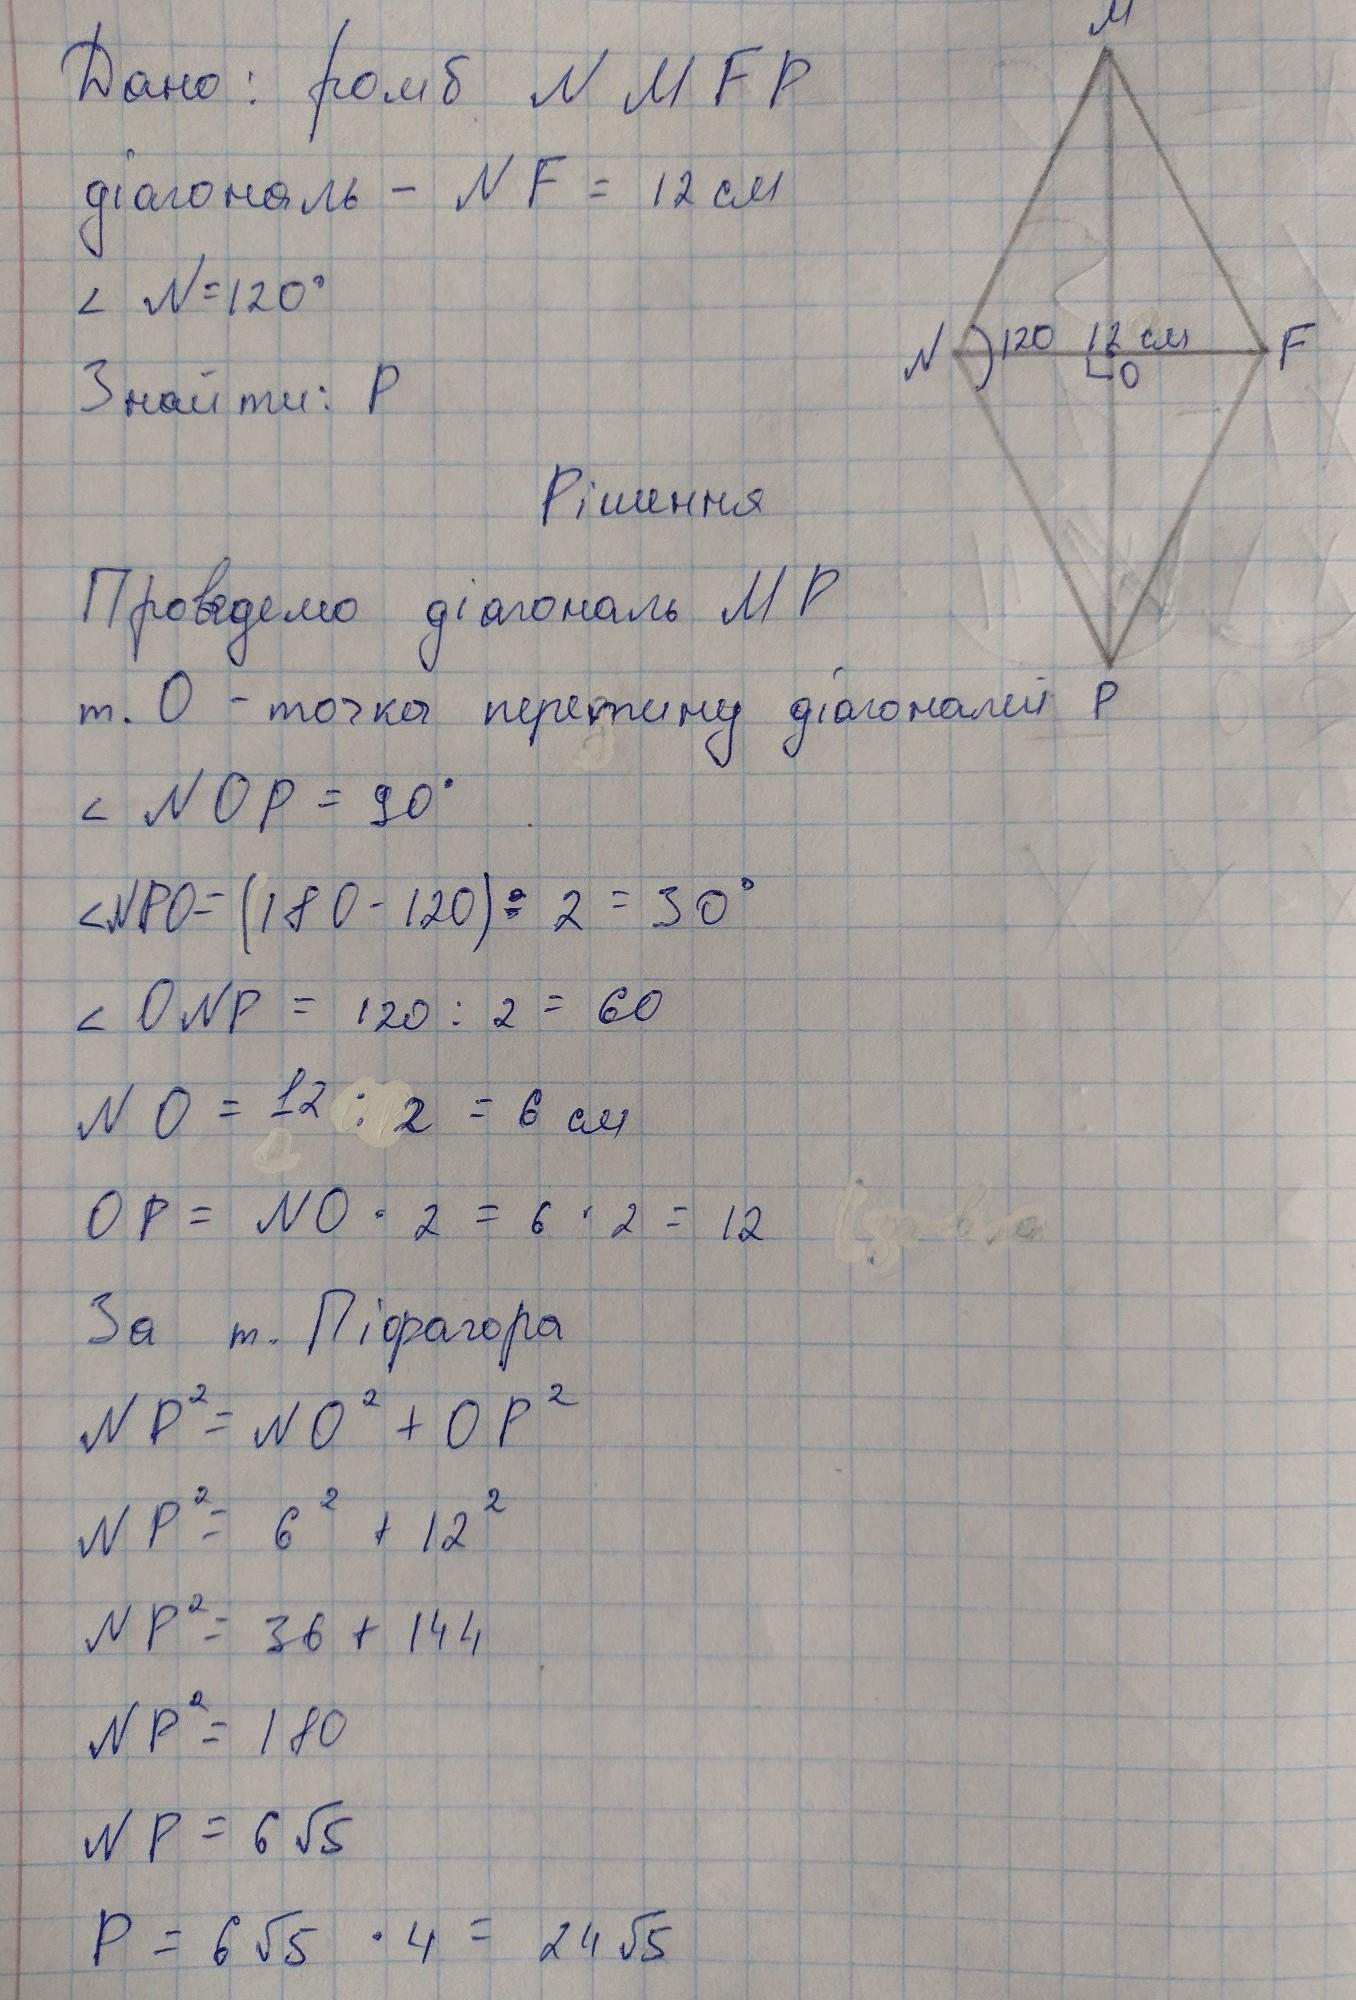 Дано: ромб NMFP
діагональ - NF = 12 см
< N=120°
Знайти: P
M
N 120 12 см F
O
P
Рішення
Проведемо діагональ MP
т. O - точка перетину діагоналей
< NOP = 90°
<NPO= (180-120): 2 = 30°
< ONP = 120 : 2 = 60
NO = 12 : 2 = 6 см
OP = NO · 2 = 6 · 2 = 12
За т. Піфагора
NP² = NO² + OP²
NP² = 6² + 12²
NP² = 36 + 144
NP² = 180
NP = 6√5
P = 6√5 · 4 = 24√5